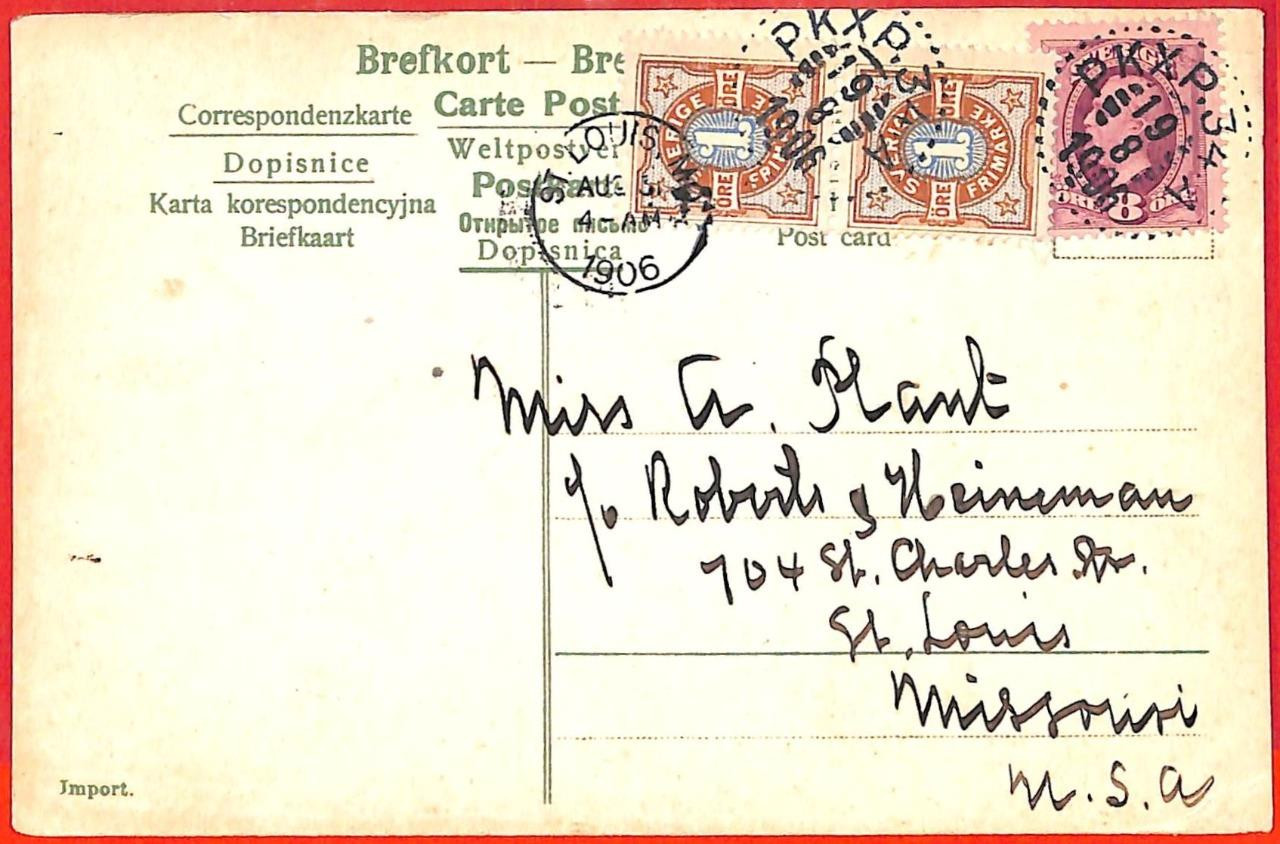 Brefkort — Bre
Correspondenzkarte
Carte Post
Dopisnice
Weltpostver
Karta korespondencyjna
Briefkaart
Открытое письмо
Dopisnica
Post card
SVERIGE
1
ÖRE
FRIMÄRKE
SVERIGE
1
ÖRE
FRIMÄRKE
8
PKXP. 34 A
19
8
1906
PKXP. 34 A
19
8
1906
ST. LOUIS, MO.
AUG 31
4 - AM
1906
Miss A. Plant
c/o Roberts & Heineman
704 St. Charles Str.
St. Louis
Missouri
U. S. A
Import.